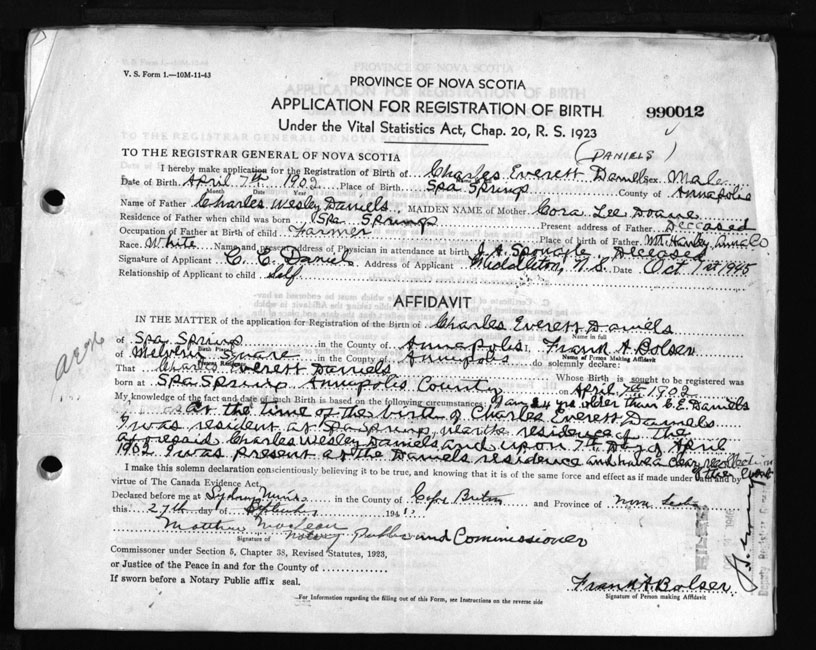 V. S. Form 1.—10M-11-43
PROVINCE OF NOVA SCOTIA
APPLICATION FOR REGISTRATION OF BIRTH
990012
Under the Vital Statistics Act, Chap. 20, R. S. 1923
(DANIELS)
TO THE REGISTRAR GENERAL OF NOVA SCOTIA
I hereby make application for the Registration of Birth of Charles Everett Daniels Sex Male
Date of Birth April 7th 1902 Place of Birth Spa Springs County of Annapolis
Month Date Year
Name of Father Charles Wesley Daniels MAIDEN NAME of Mother Cora Lee Doane
Residence of Father when child was born Spa Springs Present address of Father Deceased
Occupation of Father at Birth of child Farmer Place of birth of Father Mt. Hanley Anna Co.
Race White Name and present address of Physician in attendance at birth J. A. Sponagle, Deceased
Signature of Applicant C. E. Daniels Address of Applicant Middleton, N. S. Date Oct 1st 1945
Relationship of Applicant to child Self
AFFIDAVIT
IN THE MATTER of the application for Registration of the Birth of Charles Everett Daniels
Name in full
of Spa Springs in the County of Annapolis, Frank A. Bolser
Birth Place Name of Person Making Affidavit
of Melvern Square in the County of Annapolis do solemnly declare:
That Charles Everett Daniels Whose Birth is sought to be registered was
born at Spa Springs Annapolis County on April 7th 1902
My knowledge of the fact and date of such Birth is based on the following circumstances: I am yrs older than C. E. Daniels
At the time of the birth of Charles Everett Daniels
I was resident at Spa Springs, near the residence of the
aforesaid Charles Wesley Daniels and upon 7th Day of April
1902 I was present at the Daniels residence and have a clear recollection
of the event
I make this solemn declaration conscientiously believing it to be true, and knowing that it is of the same force and effect as if made under oath and by
virtue of The Canada Evidence Act.
Declared before me at Sydney Mines in the County of Cape Breton and Province of Nova Scotia
this 27th day of September 194
Matthew MacLean
Signature of Notary Public and Commissioner
Commissioner under Section 5, Chapter 38, Revised Statutes, 1923,
or Justice of the Peace in and for the County of
If sworn before a Notary Public affix seal.
Frank A. Bolser
Signature of Person making Affidavit
For Information regarding the filling out of this Form, see Instructions on the reverse side